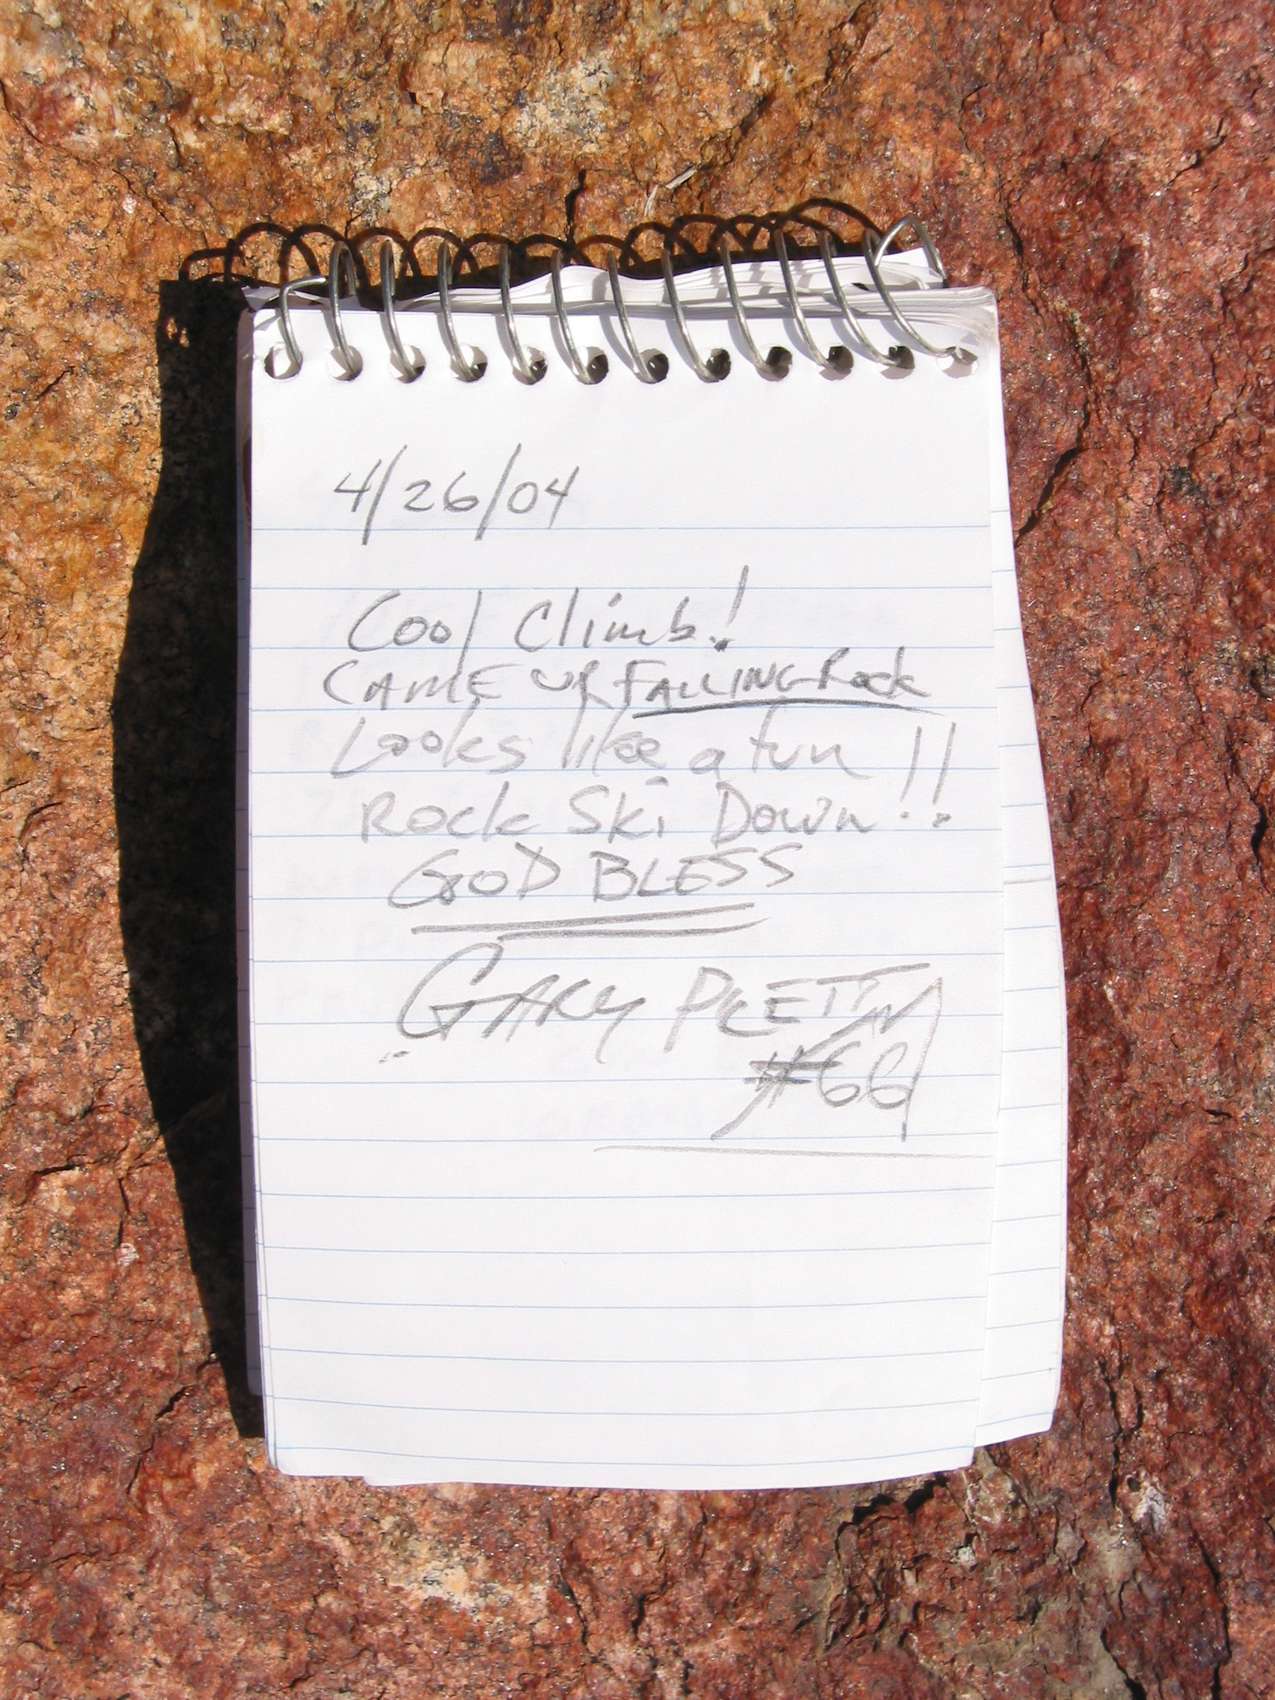 4/26/04
Cool Climb!
CAME UP FALLING Rock
Looks like a fun !!
Rock Ski Down!!
GOD BLESS
GARY
#66